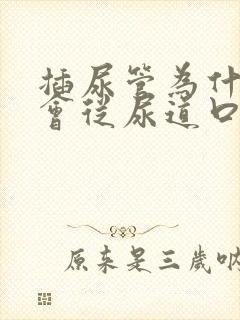 插尿管為什
會從尿道口
原来是三歲呐